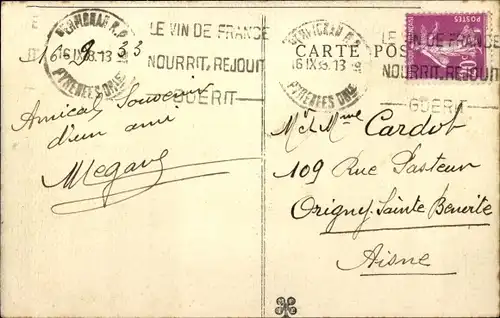 PERPIGNAN R.P.
16 IX 33. 13
PYRENEES ORles
LE VIN DE FRANCE
NOURRIT, REJOUIT
GUERIT
16-9-33
Amical Souvenir
d'un ami
CARTE POSTALE
POSTES
PERPIGNAN R.P.
16 IX 33. 13
PYRENEES ORles
LE VIN DE FRANCE
NOURRIT, REJOUIT
GUERIT
Mr et Mme Cardot
109 Rue Pasteur
Origny-Sainte Benoite
Aisne